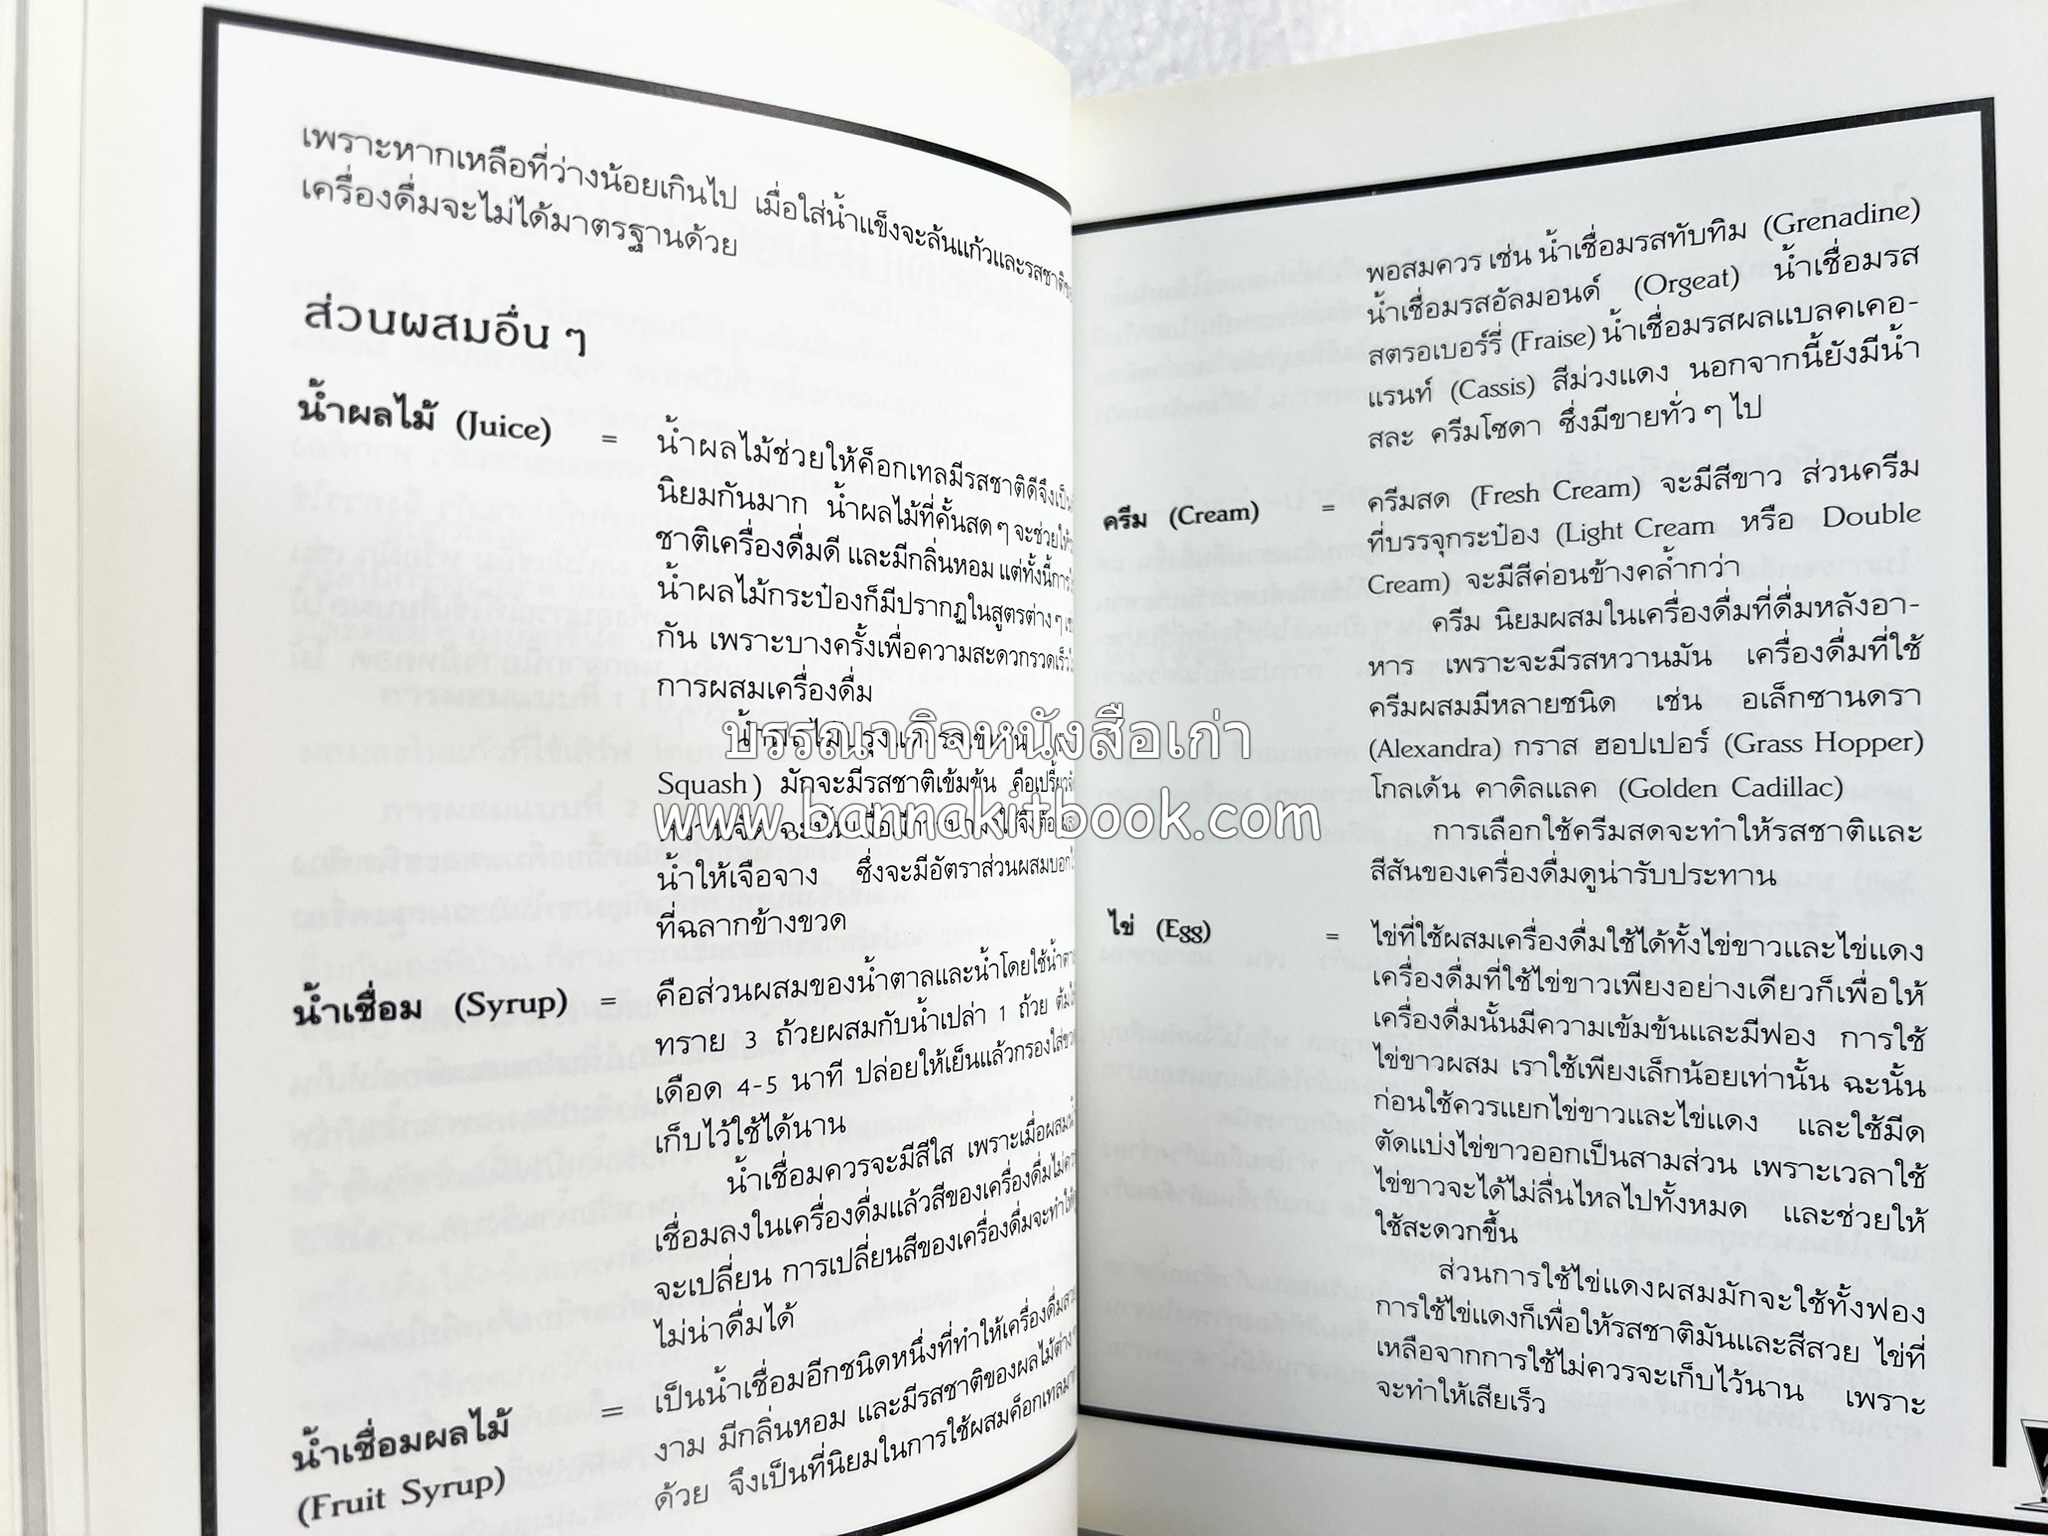 เพราะหากเหลือที่ว่างน้อยเกินไป เมื่อใส่น้ำแข็งจะล้นแก้วและรสชาติ
เครื่องดื่มจะไม่ได้มาตรฐานด้วย
ส่วนผสมอื่น ๆ
น้ำผลไม้ (Juice) = น้ำผลไม้ช่วยให้ค็อกเทลมีรสชาติดีจึงเป็น
นิยมกันมาก น้ำผลไม้ที่คั้นสด ๆ จะช่วยให้
ชาติเครื่องดื่มดี และมีกลิ่นหอม แต่ทั้งนี้
น้ำผลไม้กระป๋องก็มีปรากฏในสูตรต่าง ๆ
กัน เพราะบางครั้งเพื่อความสะดวกรวดเร็ว
การผสมเครื่องดื่ม
Squash) มักจะมีรสชาติเข้มข้น คือเปรี้ยว
น้ำให้เจือจาง ซึ่งจะมีอัตราส่วนผสมบอก
ที่ฉลากข้างขวด
น้ำเชื่อม (Syrup) = คือส่วนผสมของน้ำตาลและน้ำโดยใช้น้ำตาล
ทราย 3 ถ้วยผสมกับน้ำเปล่า 1 ถ้วย ต้ม
เดือด 4-5 นาที ปล่อยให้เย็นแล้วกรองใส่ขวด
เก็บไว้ใช้ได้นาน
น้ำเชื่อมควรจะมีสีใส เพราะเมื่อผสมน้ำ
เชื่อมลงในเครื่องดื่มแล้วสีของเครื่องดื่มไม่ควร
จะเปลี่ยน การเปลี่ยนสีของเครื่องดื่มจะทำให้
ไม่น่าดื่มได้
น้ำเชื่อมผลไม้ = เป็นน้ำเชื่อมอีกชนิดหนึ่งที่ทำให้เครื่องดื่มสวย
(Fruit Syrup) งาม มีกลิ่นหอม และมีรสชาติของผลไม้ต่าง ๆ
ด้วย จึงเป็นที่นิยมในการใช้ผสมค็อกเทล
พอสมควร เช่น น้ำเชื่อมรสทับทิม (Grenadine)
น้ำเชื่อมรสอัลมอนด์ (Orgeat) น้ำเชื่อมรส
สตรอเบอร์รี่ (Fraise) น้ำเชื่อมรสผลแบลคเคอ-
แรนท์ (Cassis) สีม่วงแดง นอกจากนี้ยังมีน้ำ
สละ ครีมโซดา ซึ่งมีขายทั่ว ๆ ไป
ครีม (Cream) = ครีมสด (Fresh Cream) จะมีสีขาว ส่วนครีม
ที่บรรจุกระป๋อง (Light Cream หรือ Double
Cream) จะมีสีค่อนข้างคล้ำกว่า
ครีม นิยมผสมในเครื่องดื่มที่ดื่มหลังอา-
หาร เพราะจะมีรสหวานมัน เครื่องดื่มที่ใช้
ครีมผสมมีหลายชนิด เช่น อเล็กซานดรา
(Alexandra) กราส ฮอปเปอร์ (Grass Hopper)
โกลเด้น คาดิลแลค (Golden Cadillac)
การเลือกใช้ครีมสดจะทำให้รสชาติและ
สีสันของเครื่องดื่มดูน่ารับประทาน
ไข่ (Egg) = ไข่ที่ใช้ผสมเครื่องดื่มใช้ได้ทั้งไข่ขาวและไข่แดง
เครื่องดื่มที่ใช้ไข่ขาวเพียงอย่างเดียวก็เพื่อให้
เครื่องดื่มนั้นมีความเข้มข้นและมีฟอง การใช้
ไข่ขาวผสม เราใช้เพียงเล็กน้อยเท่านั้น ฉะนั้น
ก่อนใช้ควรแยกไข่ขาวและไข่แดง และใช้มีด
ตัดแบ่งไข่ขาวออกเป็นสามส่วน เพราะเวลาใช้
ไข่ขาวจะได้ไม่ลื่นไหลไปทั้งหมด และช่วยให้
ใช้สะดวกขึ้น
ส่วนการใช้ไข่แดงผสมมักจะใช้ทั้งฟอง
การใช้ไข่แดงก็เพื่อให้รสชาติมันและสีสวย ไข่ที่
เหลือจากการใช้ไม่ควรจะเก็บไว้นาน เพราะ
จะทำให้เสียเร็ว
บรรณากิจหนังสือเก่า
www.bannakitbook.com